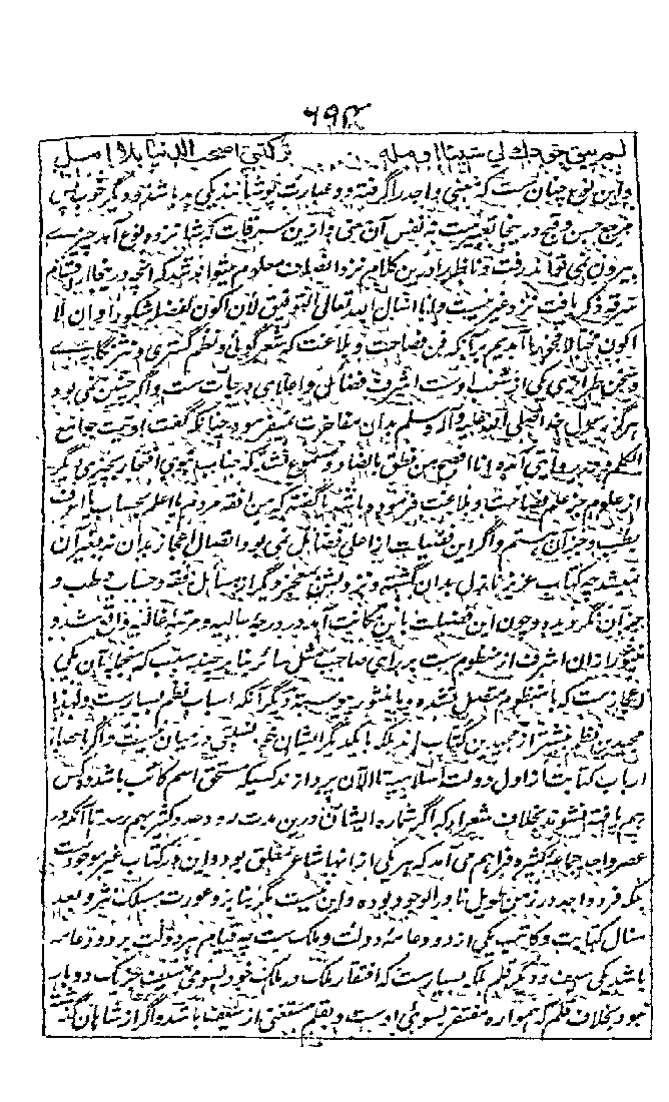 ۶۹۴
لم يبق جودك لي شيئا اومله تركتني اصحب الدنيا بلا امل
و این نوع چنان ست که معنی واحد را گرفته دو عبارت پوشانند یکی بد باشد و دیگر خوب پس
مرجع حسن و قبح درینجا تعبیرست نه نفس آن معنی و ازین سرقات که شانزده نوع آمد چیزے
بیرون نمی تواند رفت و ناظر را درین کلام نزد انصاف معلوم میتواند شد که آنچه درینجا از اقسام
سرقه ذکر یافت نزد غیر نیست و انا اسأل الله تعالی التوفیق لان اکون لفضله شکورا و ان لا
اکون مختالا فخورا آمدیم بر آنکه فن فصاحت و بلاغت که شعر گوئی و نظم گستری و نثر نگاری
و سخن طرازی یکی از شعب اوست اشرف فضائل و اعلای درجات ست و اگر چنین نمی بود
هرگز رسول خدا صلی الله علیه و آله و سلم بدان مفاخرت نمیفرمود چنانکه گفت اوتیت جوامع
الکلم و در روایتی آمده انا افصح من نطق بالضاد و مسموع نشد که جناب نبوی افتخار بچیزی دیگر
از علوم جز علم فصاحت و بلاغت فرموده باشد یا گفته که من افقه مردم یا اعلم بحساب یا اعرف
بطب و جز آن هستم و اگر این فضیلت از اعلی فضائل نمی بود اتصال اعجاز بدان نه بغیر آن
نمیشد چه کتاب عزیز نازل بدان گشته و نزولش بمعجز دیگر از مسائل فقه و حساب و طب و
جز آن نگردیده و چون این فضیلت باین مکانت آمد در درجه عالیه و مرتبه غالیه واقع شد و
منثور ازان اشرف از منظوم ست بر رای صاحب مثل سائر بنا بر چند سبب که منجمله آن یکی
اعجازست که با منظوم متصل نشده و با منثور پیوسته و دیگر آنکه اسباب نظم بسیارست و لهذا
مجیدین نظم بیشتر از مجیدین کتاب اند بلکه با یکدیگر ایشان هیچ نسبتی در میان نیست و اگر باحصای
ارباب کتابت از اول دولت اسلامیه تا الآن پردازند کسیکه مستحق اسم کاتب باشد ده کس
بهم یافته نشوند بخلاف شعراء که اگر شماره ایشان درین مدت رود عدد کثیر بهم رسد تا آنکه در
عصر واحد جماعه کثیر فراهم می آمد که هر یکی از انها شاعر مفلق بود و این در کتاب غیر موجودست
بلکه فرد واحد در زمن طویل نادر الوجود بوده و این نیست مگر بنا بر وعورت مسلک نثر و بعد
منال کتابت و کاتب یکی از دو دعامه دولت و ملک ست چه قیام هر دولت بر دو دعامه
باشد یکی سیف و دیگر قلم بلکه بسیارست که افتقار ملک در ملک خود بسوی سیف جز یک دو بار
نبود بخلاف قلم که همواره مفتقر بسوی اوست و بقلم مستغنی از سیف باشد و اگر از شاهان